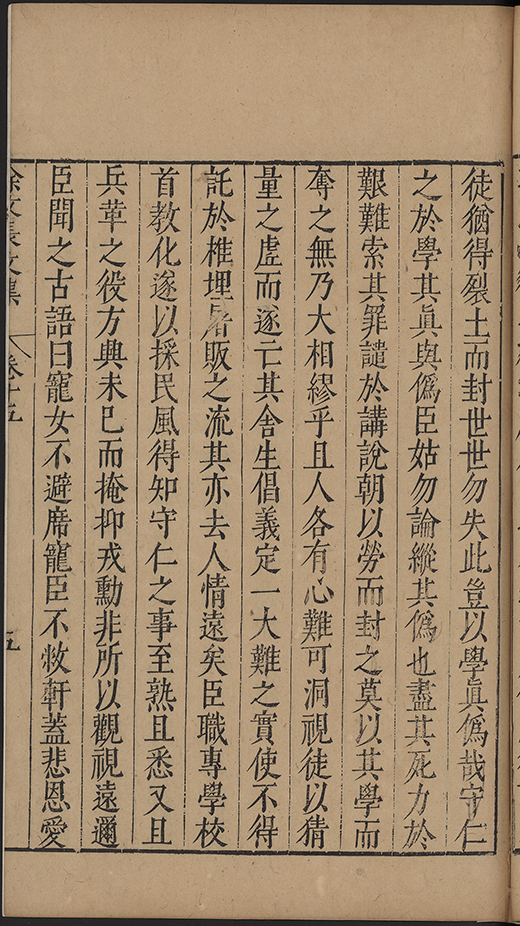 徒猶得裂土而封世世勿失此豈以學眞偽哉守仁
之於學其眞與偽臣姑勿論縱其偽也盡其死力於
艱難索其罪譴於講說朝以勞而封之莫以其學而
奪之無乃大相繆乎且人各有心難可洞視徒以猜
量之虗而遂亡其舍生倡義定一大難之實使不得
託於椎埋屠販之流其亦去人情遠矣臣職專學校
首教化遂以採民風得知守仁之事至熟且悉又且
兵革之役方興未已而掩抑戎勳非所以觀視遠邇
臣聞之古語曰寵女不避席寵臣不敝軒蓋悲恩愛
徐文長文集
卷十五
五